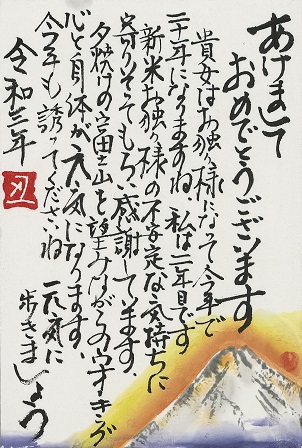 あけまして
おめでとうございます
貴女はお独り様になって今年で
二十年になりますね、私は二年目です
新米お独り様の不安定な気持ちに
寄りそってもらい感謝しています、
夕焼けの富田山を望みながらのウオーキングが
心と身体が元気になります、
今年も誘ってくださいね
元気に
歩きましょう
令和三年
丑